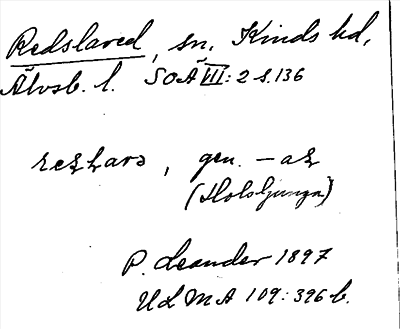 Redslared, sn, Kinds hd,
Älvsb. l. SOÄ III: 2 s. 136
gen. –
(Holsljunga)
P. Leander 1897
ULMA 109: 396 b.